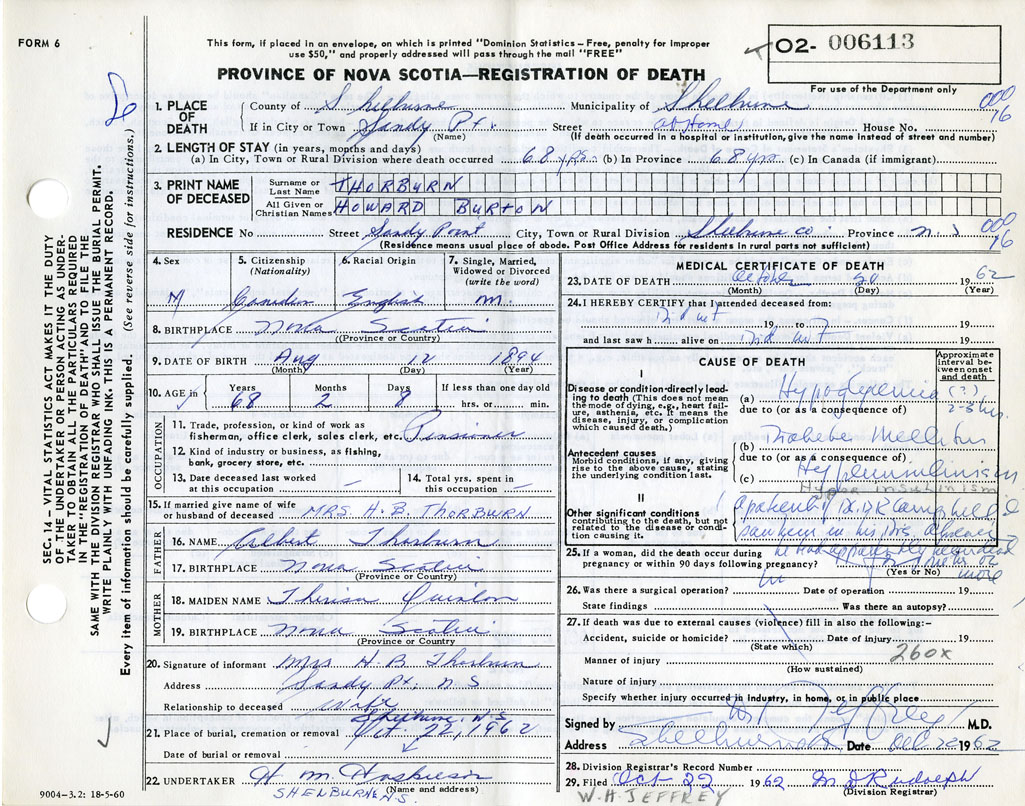 FORM 6
This form, if placed in an envelope, on which is printed "Dominion Statistics – Free, penalty for improper
use $50," and properly addressed will pass through the mail "FREE"
02- 006113
PROVINCE OF NOVA SCOTIA—REGISTRATION OF DEATH
For use of the Department only
1. PLACE OF DEATH
County of Shelburne Municipality of Shelburne
000
76
If in City or Town Sandy Pt. Street at Home House No.
(Name) (If death occurred in a hospital or institution, give the name instead of street and number)
2. LENGTH OF STAY (in years, months and days)
(a) In City, Town or Rural Division where death occurred 68 yrs. (b) In Province 68 yrs (c) In Canada (if immigrant)
3. PRINT NAME OF DECEASED
Surname or Last Name THORBURN
All Given or Christian Names HOWARD BURTON
RESIDENCE No Street Sandy Point City, Town or Rural Division Shelburne Co. Province N. S
000
76
(Residence means usual place of abode. Post Office Address for residents in rural parts not sufficient)
4. Sex
M
5. Citizenship (Nationality)
Canadian
6. Racial Origin
English
7. Single, Married, Widowed or Divorced (write the word)
M.
8. BIRTHPLACE Nova Scotia
(Province or Country)
9. DATE OF BIRTH Aug 12 1894
(Month) (Day) (Year)
10. AGE in
Years Months Days If less than one day old
68 2 8 hrs. or min.
OCCUPATION
11. Trade, profession, or kind of work as
fisherman, office clerk, sales clerk, etc. Pensioner
12. Kind of industry or business, as fishing,
bank, grocery store, etc.
13. Date deceased last worked at this occupation –
14. Total yrs. spent in this occupation –
15. If married give name of wife
or husband of deceased MRS H. B. THORBURN
FATHER
16. NAME Albert Thorburn
17. BIRTHPLACE Nova Scotia
(Province or Country)
MOTHER
18. MAIDEN NAME
19. BIRTHPLACE Nova Scotia
(Province or Country)
20. Signature of informant Mrs H. B. Thorburn
Address Sandy Pt, N S
Relationship to deceased Wife
Shelburne, N.S
21. Place of burial, cremation or removal Oct. 22, 1962
Date of burial or removal
22. UNDERTAKER H M
SHELBURNE N.S. (Name and address)
9004–3.2: 18-5-60
MEDICAL CERTIFICATE OF DEATH
23. DATE OF DEATH October 20 1962
(Month) (Day) (Year)
24. I HEREBY CERTIFY that I attended deceased from:
Did not 19 to 19
and last saw h alive on Did not 19
CAUSE OF DEATH
Approximate interval between onset and death
I
Disease or condition directly leading to death (This does not mean the mode of dying, e.g., heart failure, asthenia, etc. It means the disease, injury, or complication which caused death)
(a) Hypoglycemia (?)
2-3 hrs.
due to (or as a consequence of)
Antecedent causes
Morbid conditions, if any, giving rise to the above cause, stating the underlying condition last.
(b) Diabetes Mellitus
due to (or as a consequence of)
(c) Hyperinsulinism
Hyper insulinism
II
Other significant conditions
contributing to the death, but not related to the disease or condition causing it.
25. If a woman, did the death occur during
pregnancy or within 90 days following pregnancy?
(Yes or No)
26. Was there a surgical operation? Date of operation 19
State findings Was there an autopsy?
27. If death was due to external causes (violence) fill in also the following:–
Accident, suicide or homicide? Date of injury 19
(State which)
260x
Manner of injury
(How sustained)
Nature of injury
Specify whether injury occurred in industry, in home, or in public place
Signed by W H Jeffrey M.D.
Address Shelburne Date Oct 20 1962
28. Division Registrar's Record Number
29. Filed Oct 22 1962 M. D Rudolph
(Division Registrar)
W. H. JEFFREY
SEC. 14 – VITAL STATISTICS ACT MAKES IT THE DUTY
OF THE UNDERTAKER OR PERSON ACTING AS UNDERTAKER TO OBTAIN ALL THE PARTICULARS REQUIRED
IN THE "REGISTRATION OF DEATH" AND TO FILE THE
SAME WITH THE DIVISION REGISTRAR WHO SHALL ISSUE THE BURIAL PERMIT.
WRITE PLAINLY WITH UNFADING INK. THIS IS A PERMANENT RECORD.
Every item of information should be carefully supplied. (See reverse side for instructions.)